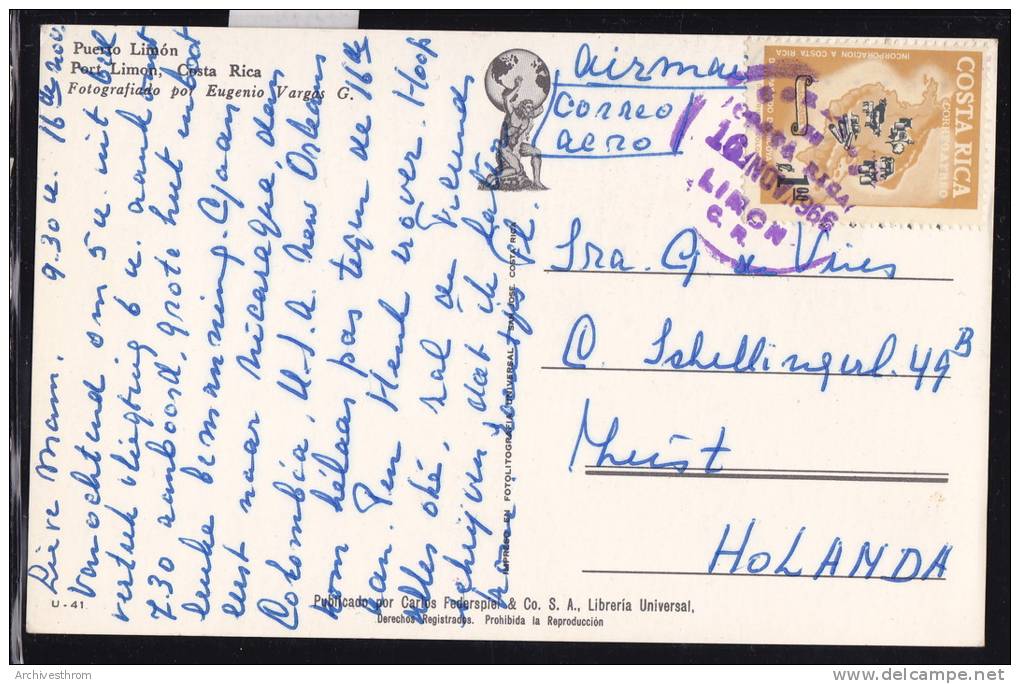 Puerto Limón
Port Limon, Costa Rica
Fotografiado por Eugenio Vargas G.
airmail
correo
aereo
COSTA RICA
CORREO AEREO
INCORPORACION A COSTA RICA
LIMON
C. R.
Lieve Mam. 9.30 u. 16 de nov.
Vanochtend om 5 u uit bed
vertrek vliegtuig 6 u. aankomst
7.30 aanboord, grote hut
leuke bemanning. Gaan
eerst naar Nicaragua, dan
Colombia, U.S.A. New Orleans
kom helaas pas tegen de 16 de
aan. Pen Henk erover. Hoop
alles oké, zal de vriends
schrijven dat ik later
kom.
Sra. G de Vries
C. Schellingerl. 49 B
Zeist
HOLANDA
IMPRESO EN FOTOLITOGRAFIA UNIVERSAL - SAN JOSE COSTA RICA
U - 41
Publicado por Carlos Federspiel & Co. S. A., Librería Universal,
Derechos Registrados. Prohibida la Reproducción
Archivesthrom
delcampe.net